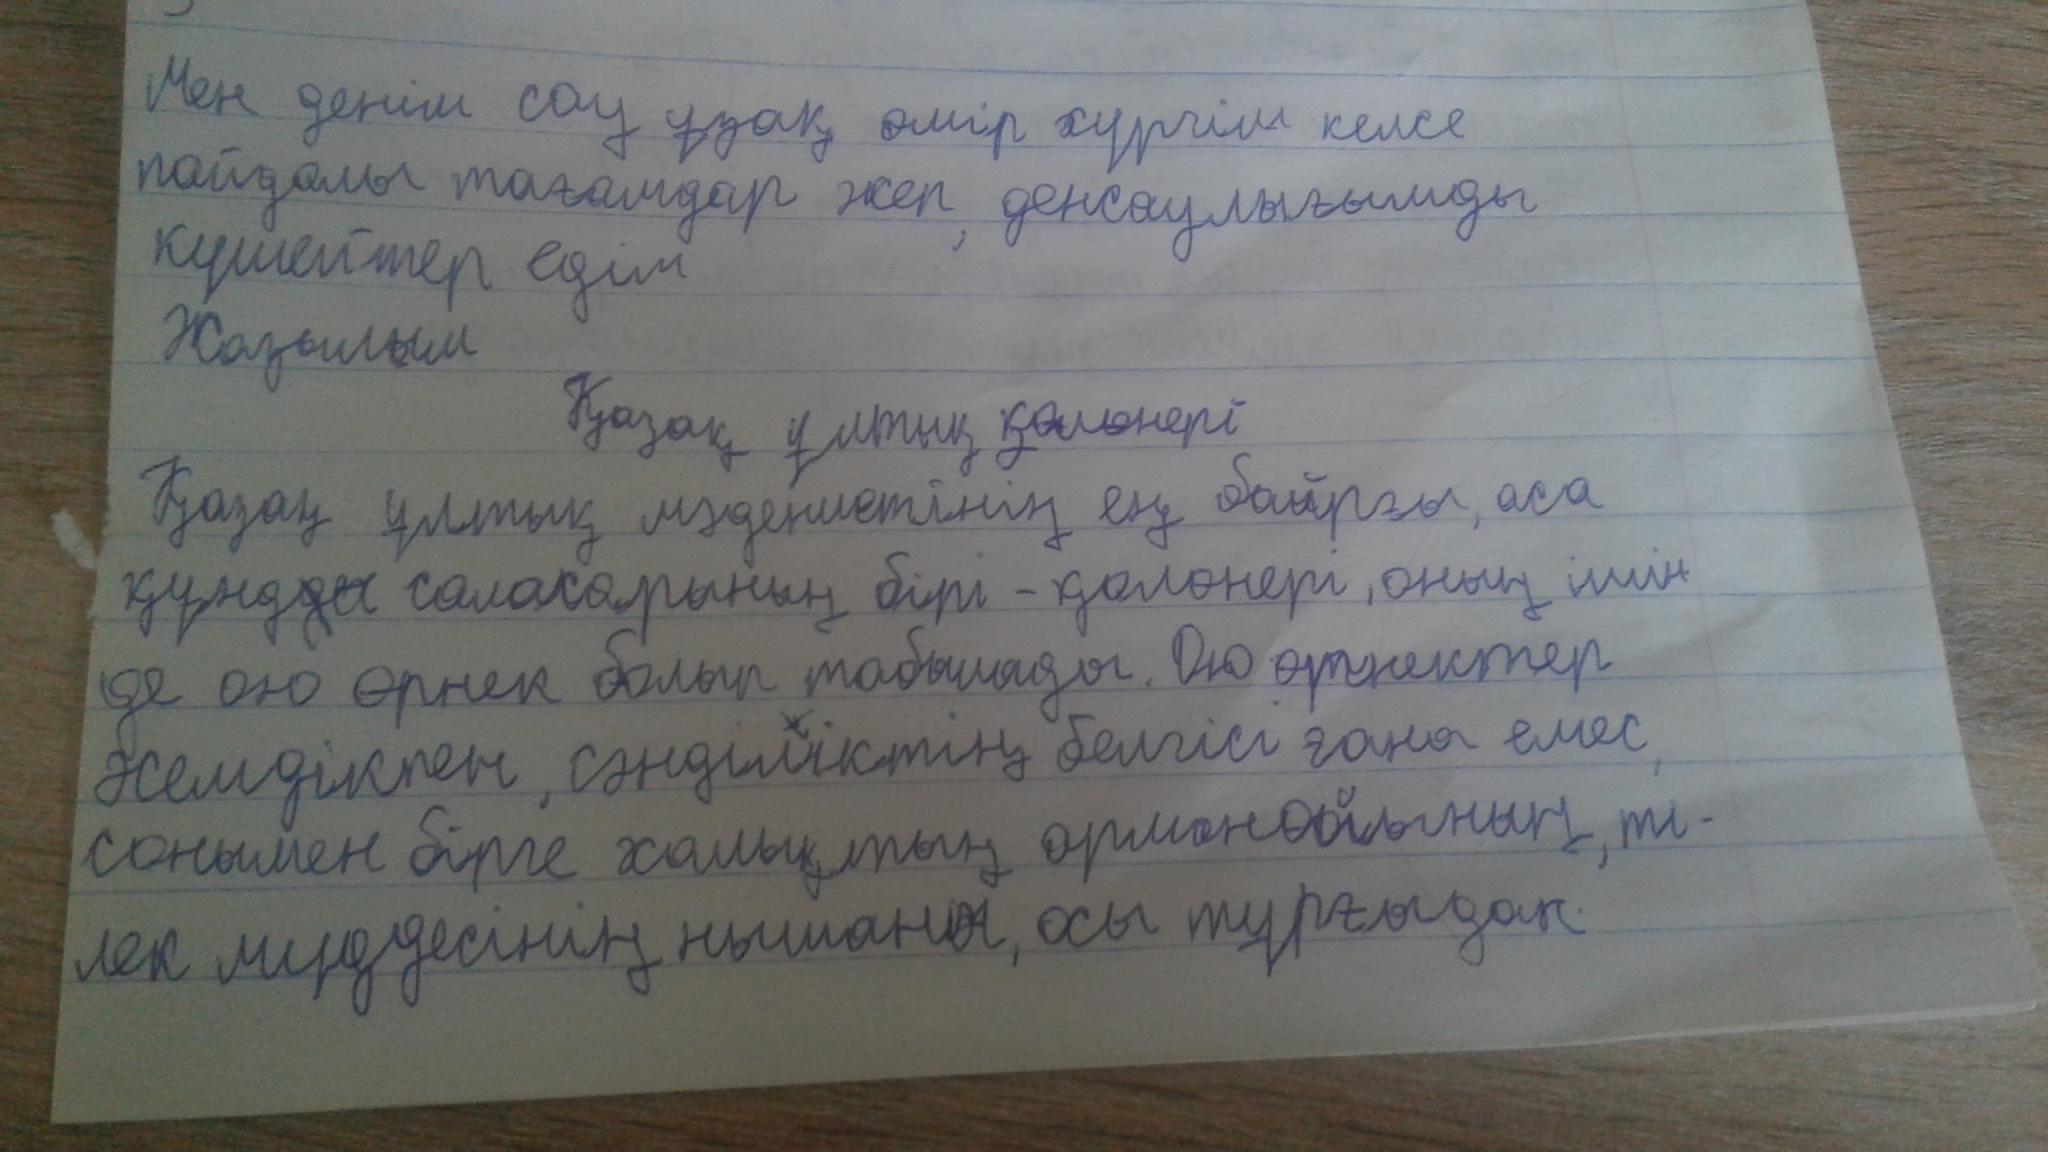 Мен денім сау ұзақ өмір хүргім келсе
пайдалы тағамдар жеп, денсаулығымды
күшейтер едім
Жазылым
Қазақ ұлттық қолөнері
Қазақ ұлттық мәдениетінің ең байрғы, аса
құнды салаларының бірі - қолөнері, оның ішін
де ою өрнек болып табылады. Ою өрнектер
әсемдіктен, сәнділіктің белгісі ғана емес,
сонымен бірге халықтың арманойының, ті-
лек мүддесінің нышаны, осы тұрғыдан.